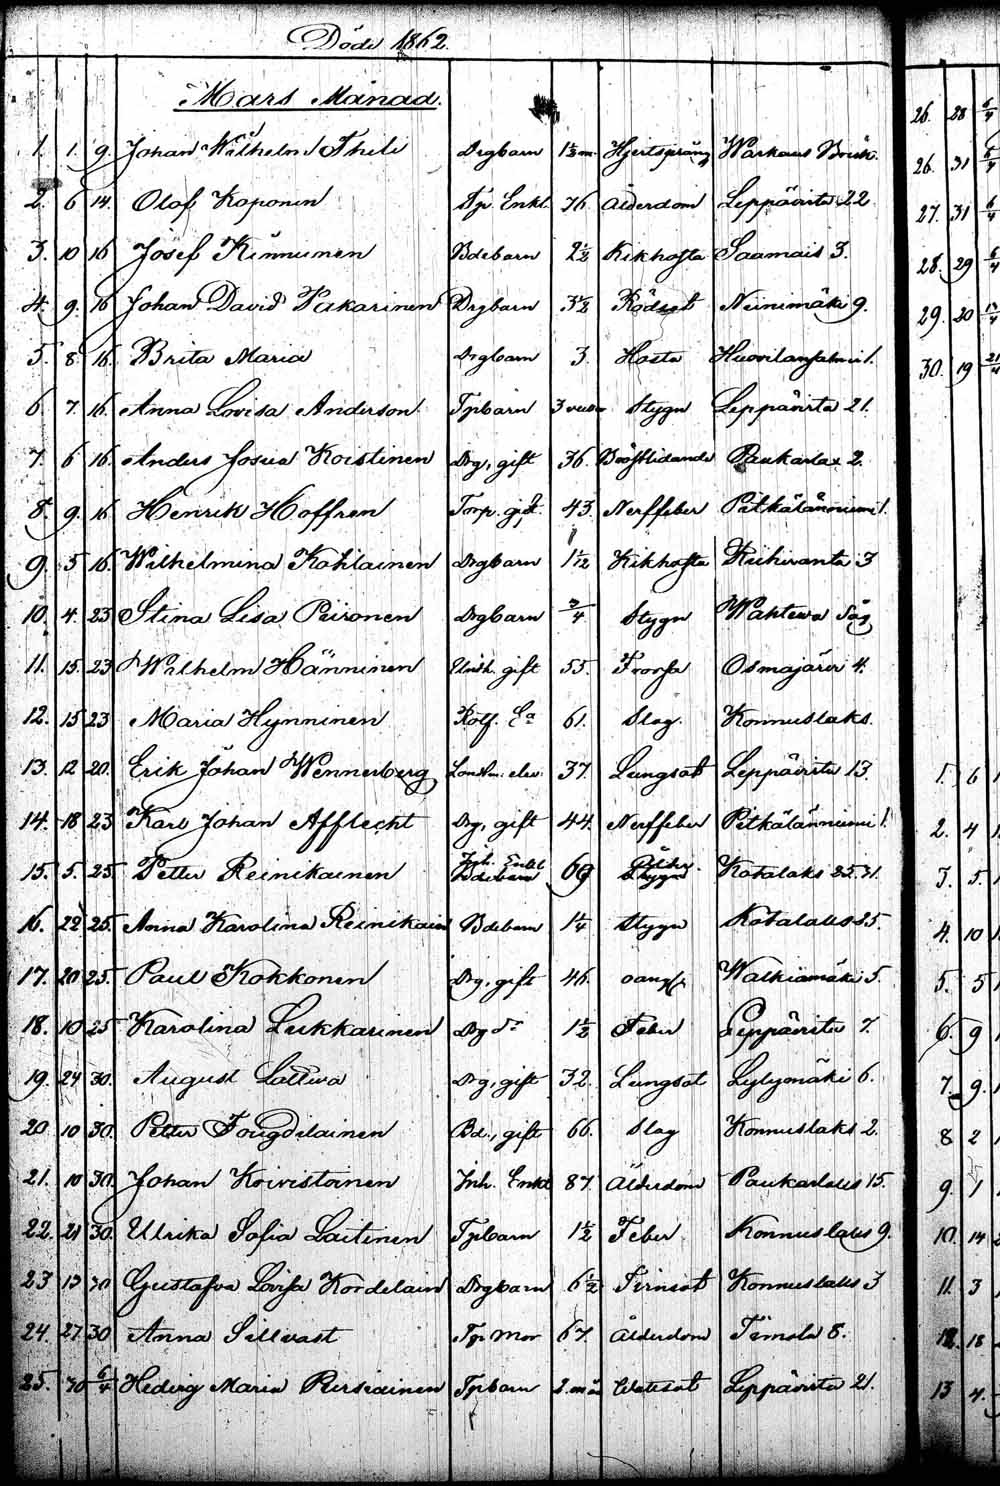 Döde 1862.
Mars Månad.
1. 1. 9. Johan Wilhelm Thile Drgbarn 1½ m. Hjertspräng Warkaus Bruk.
2. 6 14. Olof Koponen Tp. Enkl. 76. Ålderdom Leppävirta 22
3. 10 16 Josef Kinnunen Bdebarn 2½ Kikhosta Saamais 3.
4. 9. 16 Johan David Kakarinen Drgbarn 3½ Rödsot Niinimäki 9.
5. 8 16. Brita Maria Drgbarn 3. Hosta 1.
6. 7. 16. Anna Lovisa Anderson Tpbarn 3 Stygn Leppävirta 21.
7. 6 16. Anders Josua Koistinen Drg, gift 36. Bröstlidande Paukarlax 2.
8. 9. 16 Henrik Hoffren Torp. gift. 43. Nerffeber Pitkälänniemi 1.
9. 5 16. Wilhelmina Kohlainen Drgbarn 1 1/12 Kikhosta Riihiranta 3
10. 4. 23 Stina Lisa Piironen Drgbarn 3/4 Stygn Wahtewa Såg
11. 15. 23 Wilhelm Hänninen gift 55. Frossa Osmajärvi 4.
12. 15 23 Maria Hynninen 61. Slag. Konnuslaks.
13. 12 20. Erik Johan Wennerberg 37. Lungsot Leppävirta 13.
14. 18 23 Karl Johan Afflecht Drg, gift 44. Nerffeber Pitkälänniemi 1.
15. 5. 25. Petter Reinikainen Inh. Enkl 69 Kotalaks 25.
16. 22 25. Anna Karolina Reinikain Bdebarn 1¼ Stygn Kotalaks 25.
17. 20 25. Paul Kokkonen Drg, gift 46. Walkiamäki 5.
18. 10 25 Karolina Lukkarinen Drg dr 1½ Feber Leppävirta 7.
19. 24 30. August Lattwa Drg, gift 32. Lungsot Lylymäki 6.
20. 10 30. Petter Fougdelainen Bd., gift 66. Slag Konnuslaks 2.
21. 10 30. Johan Koivistoinen Inh. Enkl 87. Ålderdom Paukarlaks 15.
22. 21 30. Ulrika Sofia Laitinen Tpbarn 1½ Feber Konnuslaks 9.
23 13 30 Gustafva Lovisa Kordelain Drgbarn 6½ Konnuslaks 3
24. 27. 30 Anna Sillvast Tp mor 67. Ålderdom Timola 8.
25. 30 6/4 Hedvig Maria Pursiainen Tpbarn 2. mån Leppävirta 21.
26. 28 6/4
26. 31 6/4
27. 31 6/4
28. 29 6/4
29. 20
30. 19 21/4
1. 6
2. 4
3. 5
4. 10
5. 5
6. 9
7. 9
8 2
9. 1
10. 14
11. 3
12. 18
13 4.